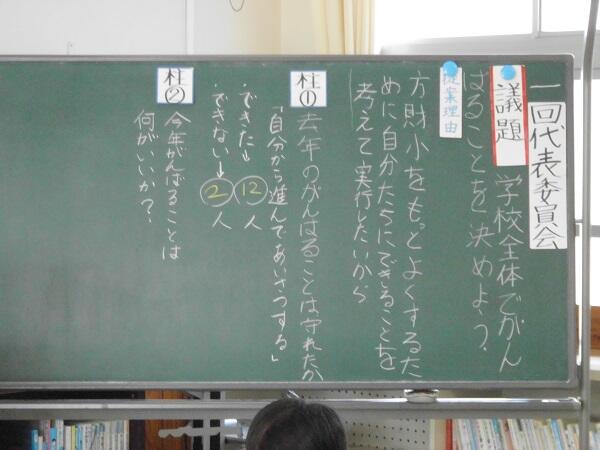 一回代表委員会
議題 学校全体でがん
ばることを決めよう。
提案理由
方財小をもっとよくするた
めに自分たちにできることを
考えて実行したいから
柱① 去年のがんばることは守れたか
「自分から進んであいさつする」
・できた→12人
・できない→2人
柱② 今年がんばることは
何がいいか?